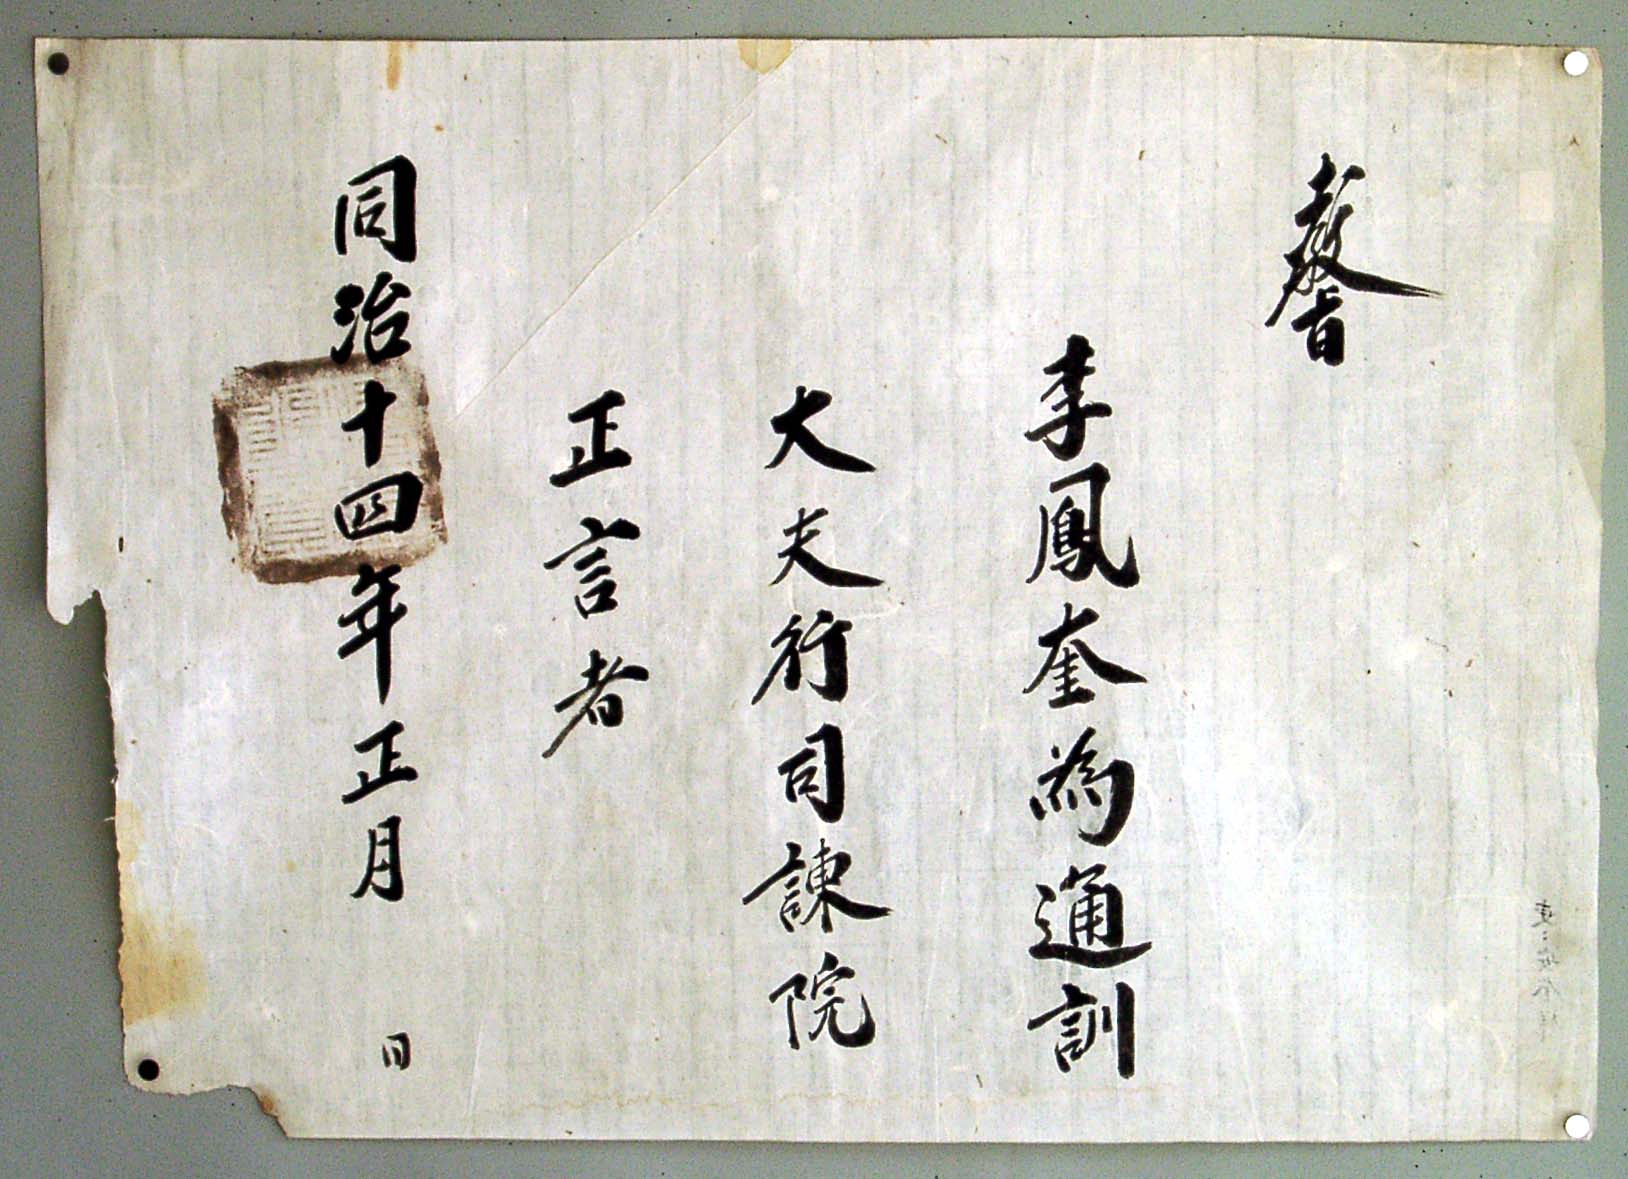 敎旨
李鳳奎爲通訓
大夫行司諫院
正言者
同治十四年正月　日